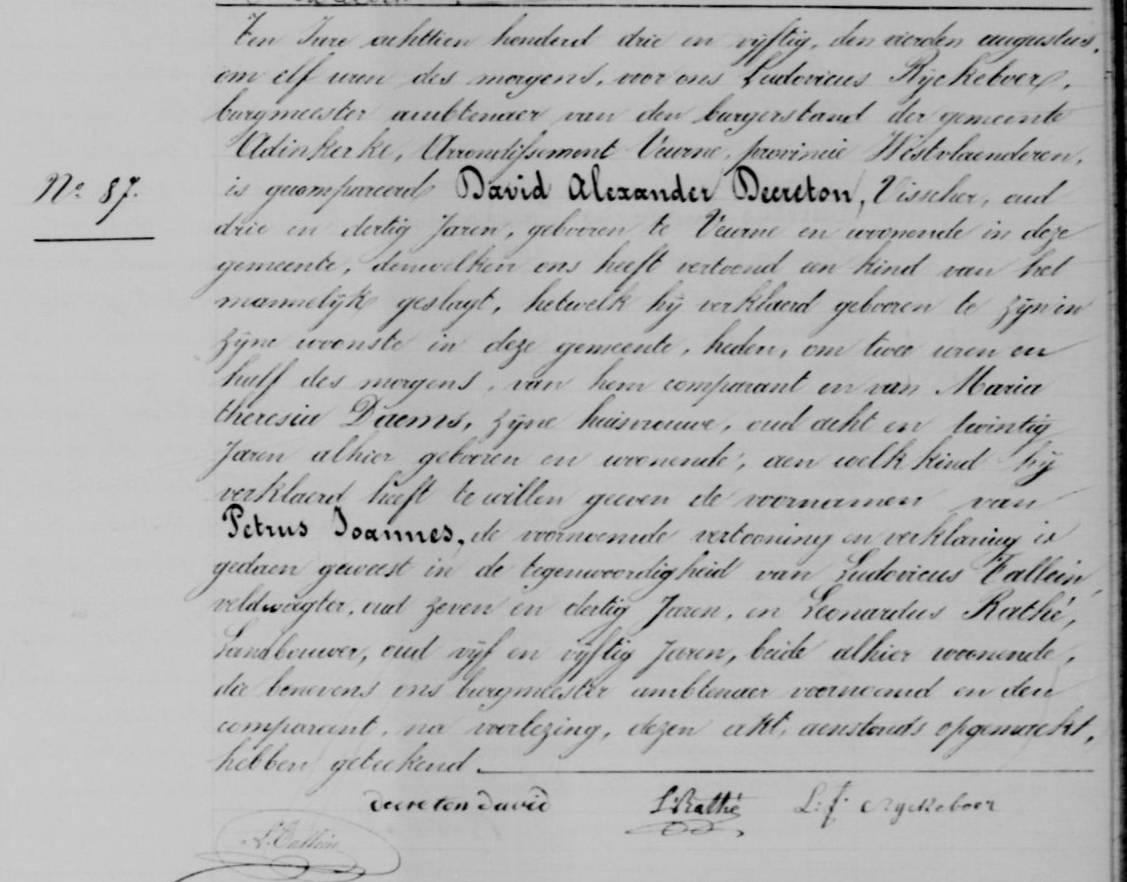 Ten Jare achttien honderd drie en vyftig, den vierden augustus,
om elf uren des morgens, voor ons Ludovicus Ryckeboer,
burgmeester ambtenaer van den burgerstand der gemeente
Adinkerke, Arrondissement Veurne, provincie Westvlaenderen,
Nº 87.
is gecompareerd David Alexander Decreton, Visscher, oud
drie en dertig Jaren, gebooren te Veurne en woonende in deze
gemeente, denwelken ons heeft vertoond een kind van het
mannelyk geslagt, hetwelk hy verklaerd gebooren te zyn in
zyne woonste in deze gemeente, heden, om twee uren en
half des morgens, van hem comparant en van Maria
theresia Daems, zyne huisvrouwe, oud acht en twintig
Jaren alhier gebooren en woonende, aen welk kind hy
verklaerd heeft te willen geeven de voornamen van
Petrus Joannes, de voornoemde vertooning en verklaring is
gedaen geweest in de tegenwoordigheid van Ludovicus Tallein,
veldwagter, oud zeven en dertig Jaren, en Leonardus Rathé,
Landbouwer, oud vyf en vyftig Jaren, beide alhier woonende,
die benevens ons burgmeester ambtenaer voornoemd en den
comparant, na voorlezing, dezen akt, aenstonds opgemaekt,
hebben geteekend
decreton david L: Rathé L: f: Ryckeboer